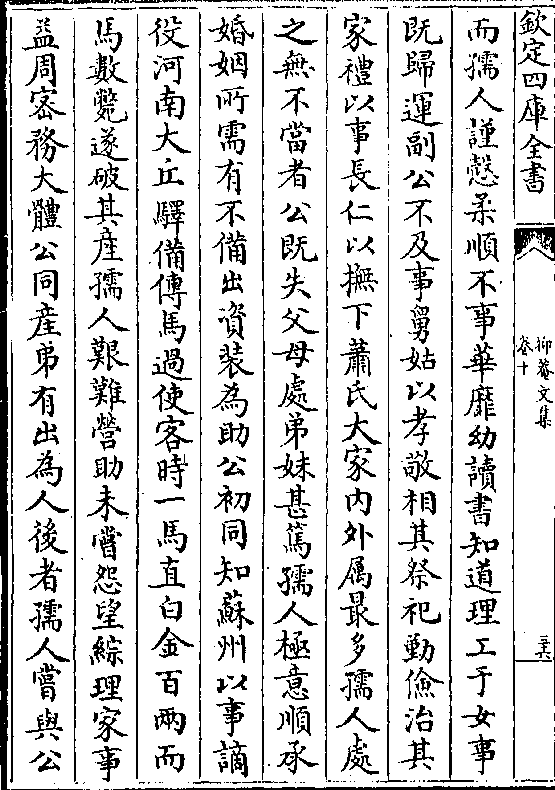 欽定四庫全書
抑菴文集
卷十
三六
而孺人謹慤柔順不事華靡幼讀書知道理工于女事
既歸運副公不及事舅姑以孝敬相其祭祀勤儉治其
家禮以事長仁以撫下蕭氏大家内外属最多孺人處
之無不當者公既失父母處弟妹甚篤孺人極意順承
婚姻所需有不備出資裝為助公初同知蘇州以事謫
役河南大丘驛備傳馬過使客時一馬直白金百兩而
馬數斃遂破其產孺人艱難營助未嘗怨望綜理家事
益周宻務大體公同產弟有出為人後者孺人嘗與公